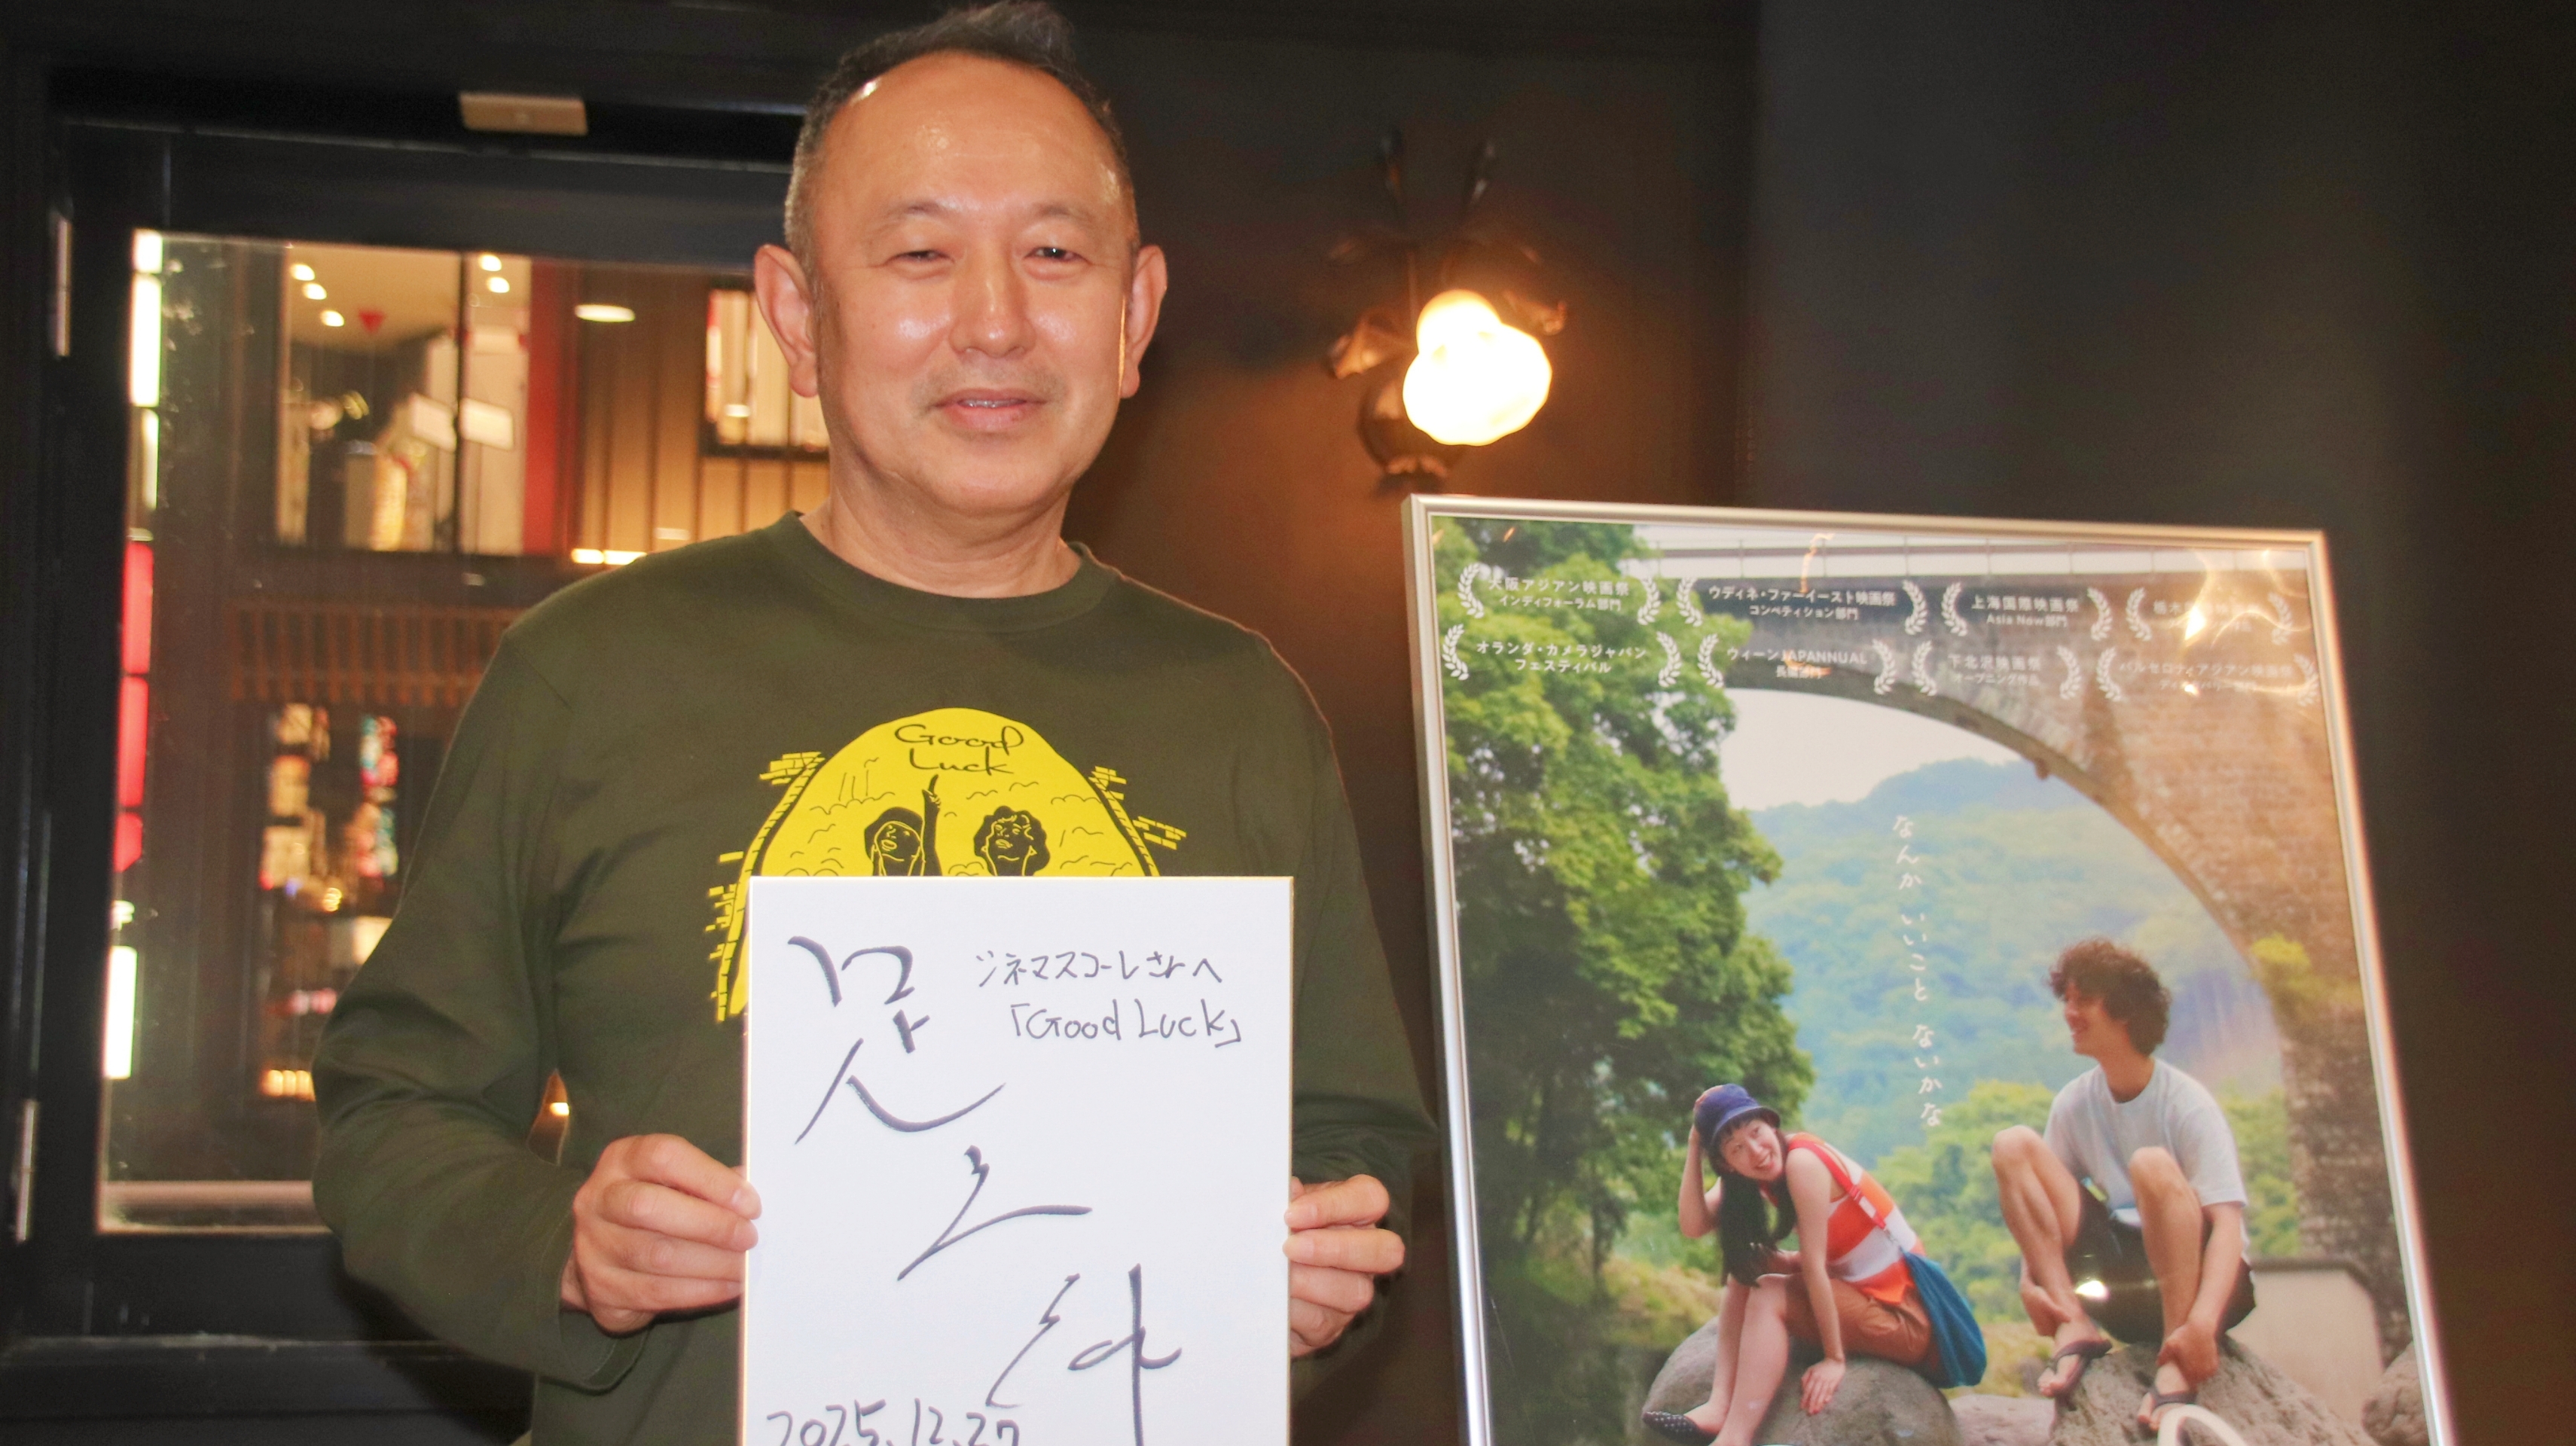 Good
Luck
ジネマスコーレさんへ
「Good Luck」
足立紳
2025.12.27
大阪アジアン映画祭
インディフォーラム部門
ウディネ・ファーイースト映画祭
コンペティション部門
上海国際映画祭
Asia Now部門
オランダ・カメラジャパン
フェスティバル
ウィーンJAPANNUAL
長編部門
下北沢映画祭
オープニング作品
バルセロナアジアン映画祭
なんか いいこと ないかな